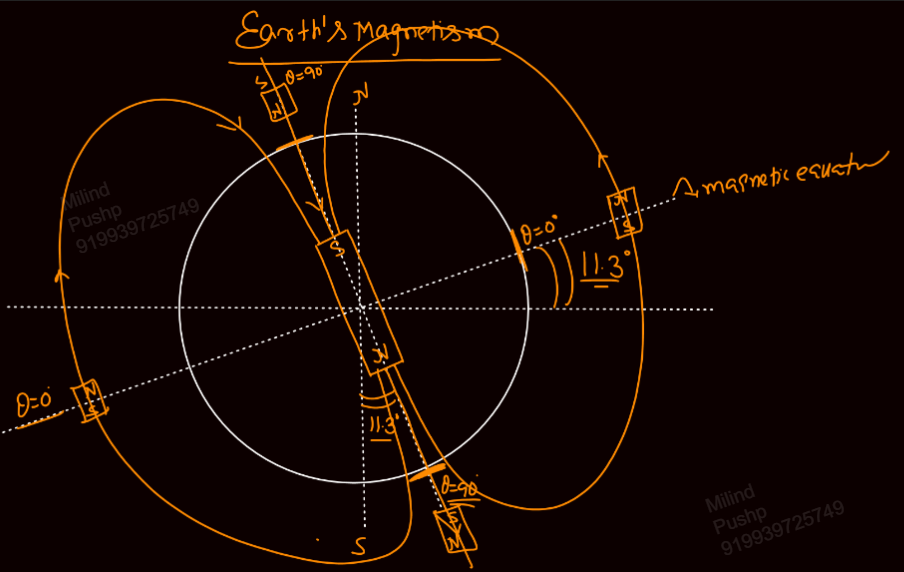 Earth's Magnetism
S
θ=90°
N
N
Milind
Pushp
919939725749
magnetic equator
N
S
θ=0°
11.3°
S
N
θ=0
N
S
11.3°
θ=90
S
N
S
Milind
Pushp
919939725749